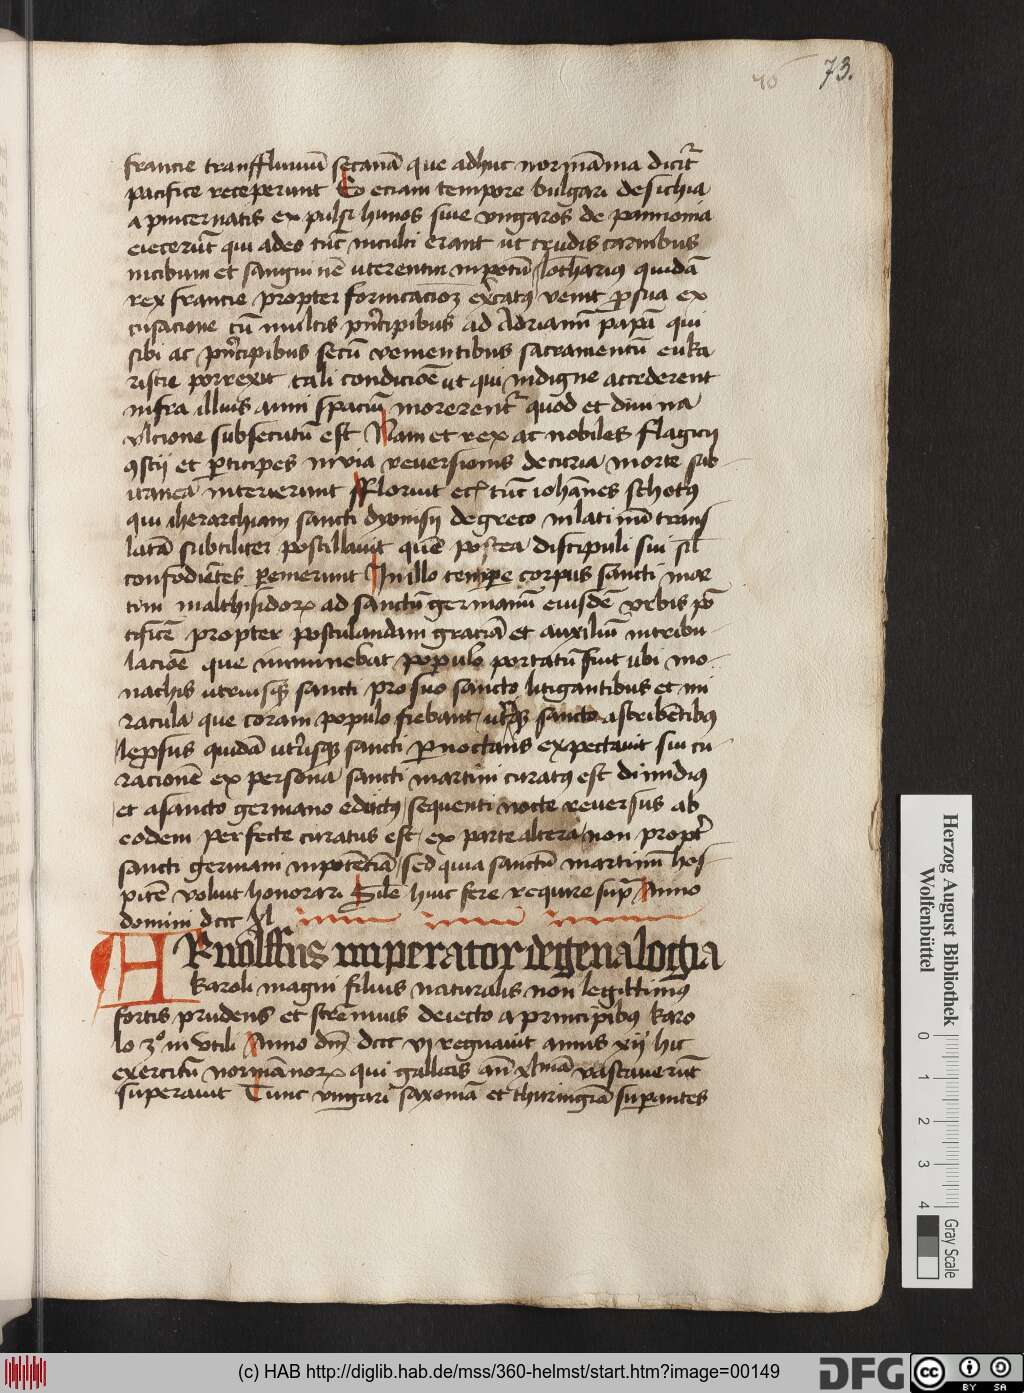 73.
francie transfluuiū secanā que adhuc normānia dicit̄
pacifice receperunt Eo eciam tempore bulgari de sichia
a pincernatis ex pulsi hunos siue vngaros de pannonia
eiecerūt qui adeo tūc inculti erant ut crudis carnibus
rex francie propter fornicacioꝫ
cusacione cū multis pn̄cipibus ad Adrianū papā qui
sibi ac pn̄cipibus secū venientibus sacramentū euka
ristie porrexit tali condicioē ut qui indigne accederent
infra illius anni spaciū morerent̄ quod et diuina
vlcione subsecutū est Nam et rex ac nobiles flagicij
ꝯscij et ꝑticipes in via reuersionis
itanea interierunt Floruit ecī tūc iohānes schotꝰ
qui iherarchiam sancti dyonisij de greco in latinū trans
latā subtiliter postillauit quē postea discipuli sui
confodiētes ꝑemerunt In illo tempe corpus sancti mar
tini ad sanctū germanū eiusdē vrbis pō
tificē propter postulandam graciā et auxiliū in tribu
lacioē que imminebat populo portatū fuit ubi mo
nachis utriusqꝫ sancti pro suo sancto litigantibus et mi
racula que coram populo fiebant utriqꝫ sancto ascribētibꝰ
lepsus quidā utriusqꝫ sancti ꝑnoctans expectauit sui cu
racionē ex persona sancti martini curatꝰ est dimidiꝰ
et a sancto germano eductꝰ sequenti nocte reuersus ab
eodem perfecte curatus est ex parte altera non propt̄
sancti germani inpotēciā sed quia sanctū martinū hos
pitē voluit honorari Sile huic fere require sup̄ Anno
domini dccc xl
ARnolffus imperator de genalogia
karoli magni filius naturalis non legittimꝰ
fortis prudens et strēnuus deiecto a principibꝰ karo
lo 3º in vtili Anno dn̄i dccc vi regnauit annis xij hic
exercitū normānorꝫ qui gallias an̄ xlmā vastauerūt
superauit Tunc vngari saxoniā et thuringiā superantes
Herzog August Bibliothek
Wolfenbüttel
0 1 2 3 4
Gray Scale
(c) HAB http://diglib.hab.de/mss/360-helmst/start.htm?image=00149
DFG
cc
BY SA